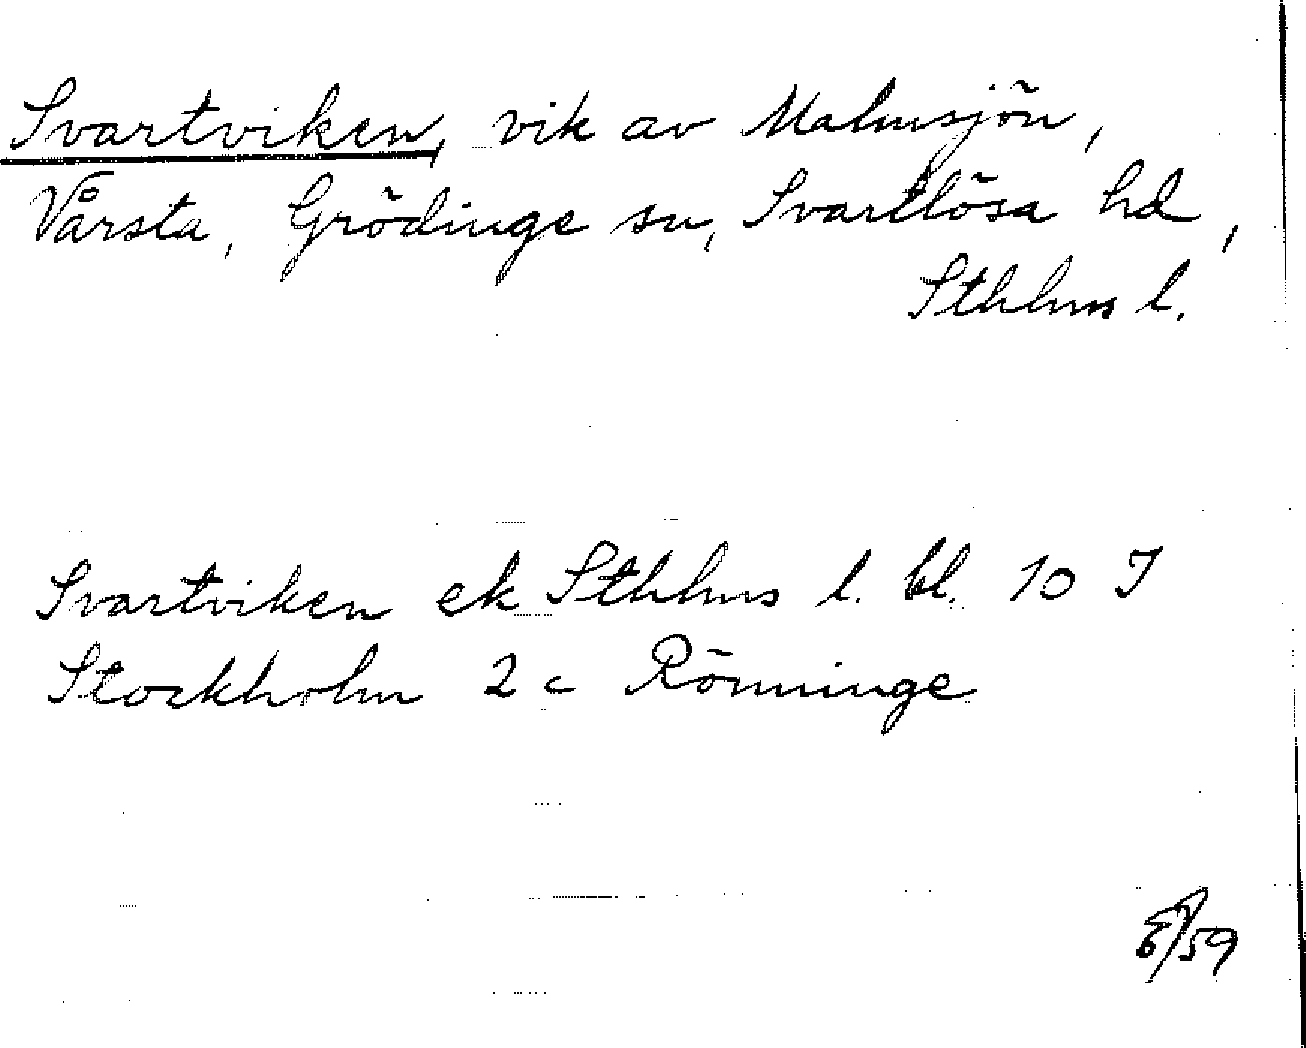 Svartviken, vik av Malmsjön,
Vårsta, Grödinge sn, Svartlösa hd,
Sthlms l.
Svartviken ek Sthlms l. bl. 10 I
Stockholm 2 c Rönninge
/59